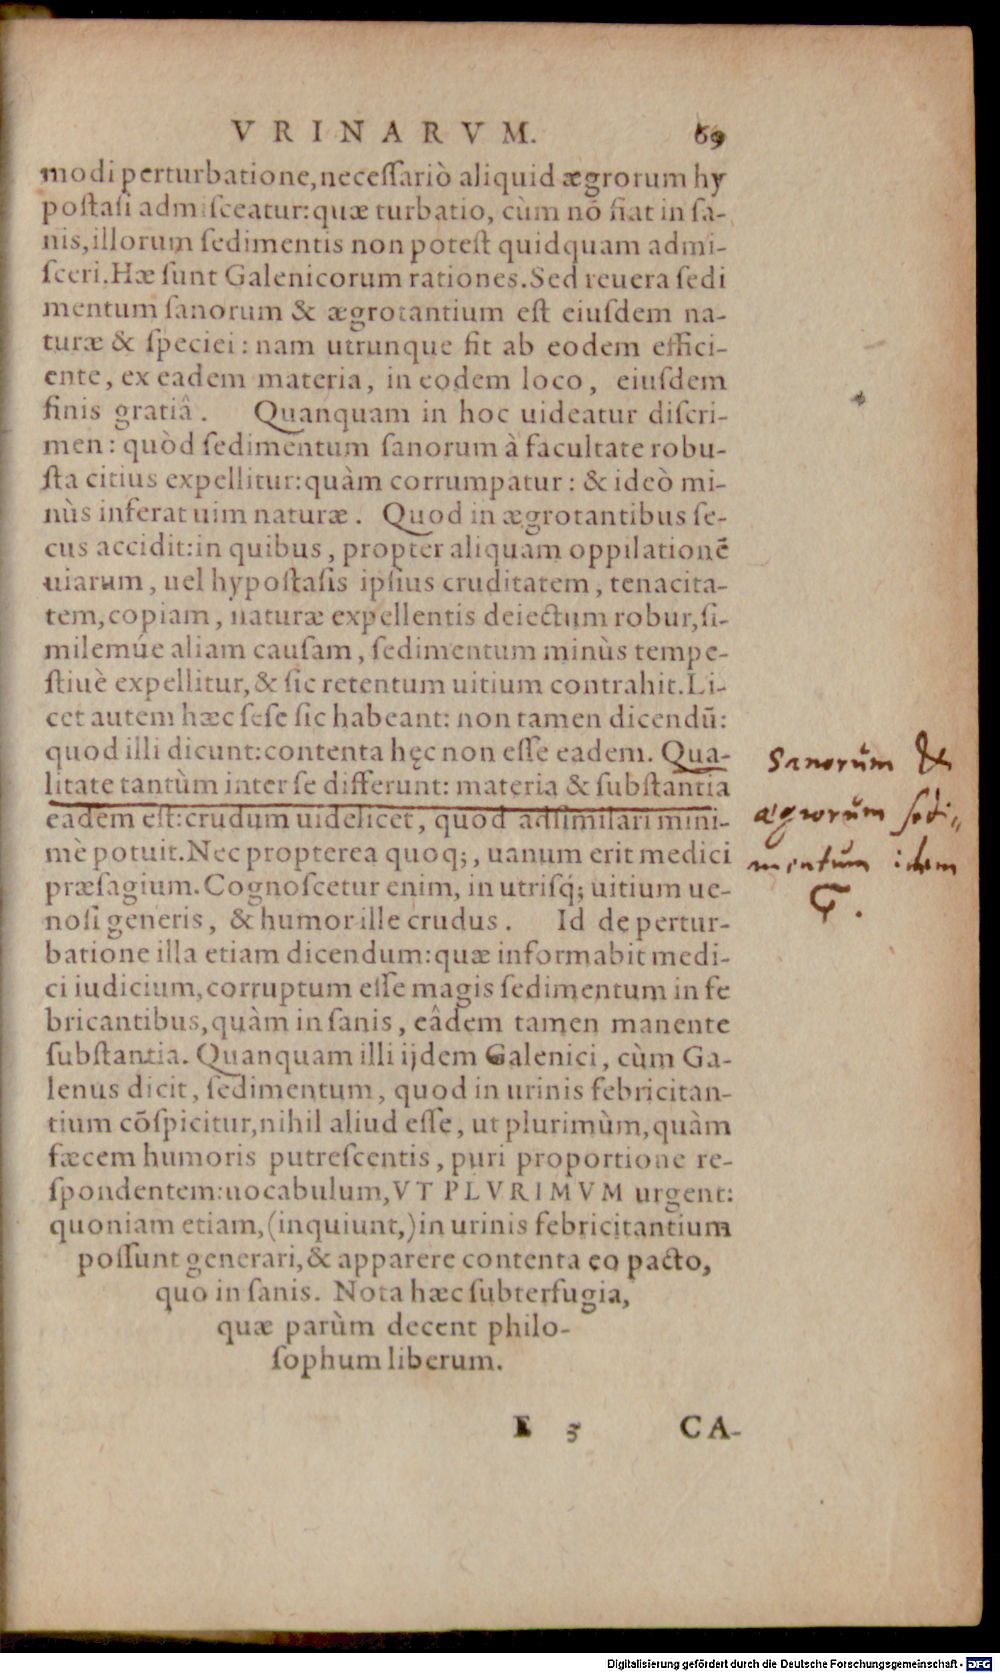 VRINARVM. 69
modi perturbatione, necessariò aliquid ægrorum hy
postasi admisceatur: quæ turbatio, cùm nō fiat in sa-
nis, illorum sedimentis non potest quidquam admi-
sceri. Hæ sunt Galenicorum rationes. Sed reuera sedi
mentum sanorum & ægrotantium est eiusdem na-
turæ & speciei: nam utrunque fit ab eodem effici-
ente, ex eadem materia, in eodem loco, eiusdem
finis gratiâ. Quanquam in hoc uideatur discri-
men: quòd sedimentum sanorum à facultate robu-
sta citius expellitur: quàm corrumpatur: & ideò mi-
nùs inferat uim naturæ. Quod in ægrotantibus se-
cus accidit: in quibus, propter aliquam oppilationē
uiarum, uel hypostasis ipsius cruditatem, tenacita-
tem, copiam, naturæ expellentis deiectum robur, si-
milemúe aliam causam, sedimentum minùs tempe-
stiuè expellitur, & sic retentum uitium contrahit. Li-
cet autem hæc sese sic habeant: non tamen dicendū:
quod illi dicunt: contenta hęc non esse eadem. Qua-
litate tantùm inter se differunt: materia & substantia
eadem est: crudum uidelicet, quod adsimilari mini-
mè potuit. Nec propterea quoq;, uanum erit medici
præsagium. Cognoscetur enim, in utrisq; uitium ue-
nosi generis, & humor ille crudus. Id de pertur-
batione illa etiam dicendum: quæ informabit medi-
ci iudicium, corruptum esse magis sedimentum in fe
bricantibus, quàm in sanis, eâdem tamen manente
substantia. Quanquam illi ijdem Galenici, cùm Ga-
lenus dicit, sedimentum, quod in urinis febricitan-
tium cōspicitur, nihil aliud esse, ut plurimùm, quàm
fæcem humoris putrescentis, puri proportione re-
spondentem: uocabulum, VT PLVRIMVM urgent:
quoniam etiam, (inquiunt,) in urinis febricitantium
possunt generari, & apparere contenta eo pacto,
quo in sanis. Nota hæc subterfugia,
quæ parùm decent philo-
sophum liberum.
E 5 CA-
Sanorum &
ægrorum sedi-
mentum idem
Digitalisierung gefördert durch die Deutsche Forschungsgemeinschaft - DFG